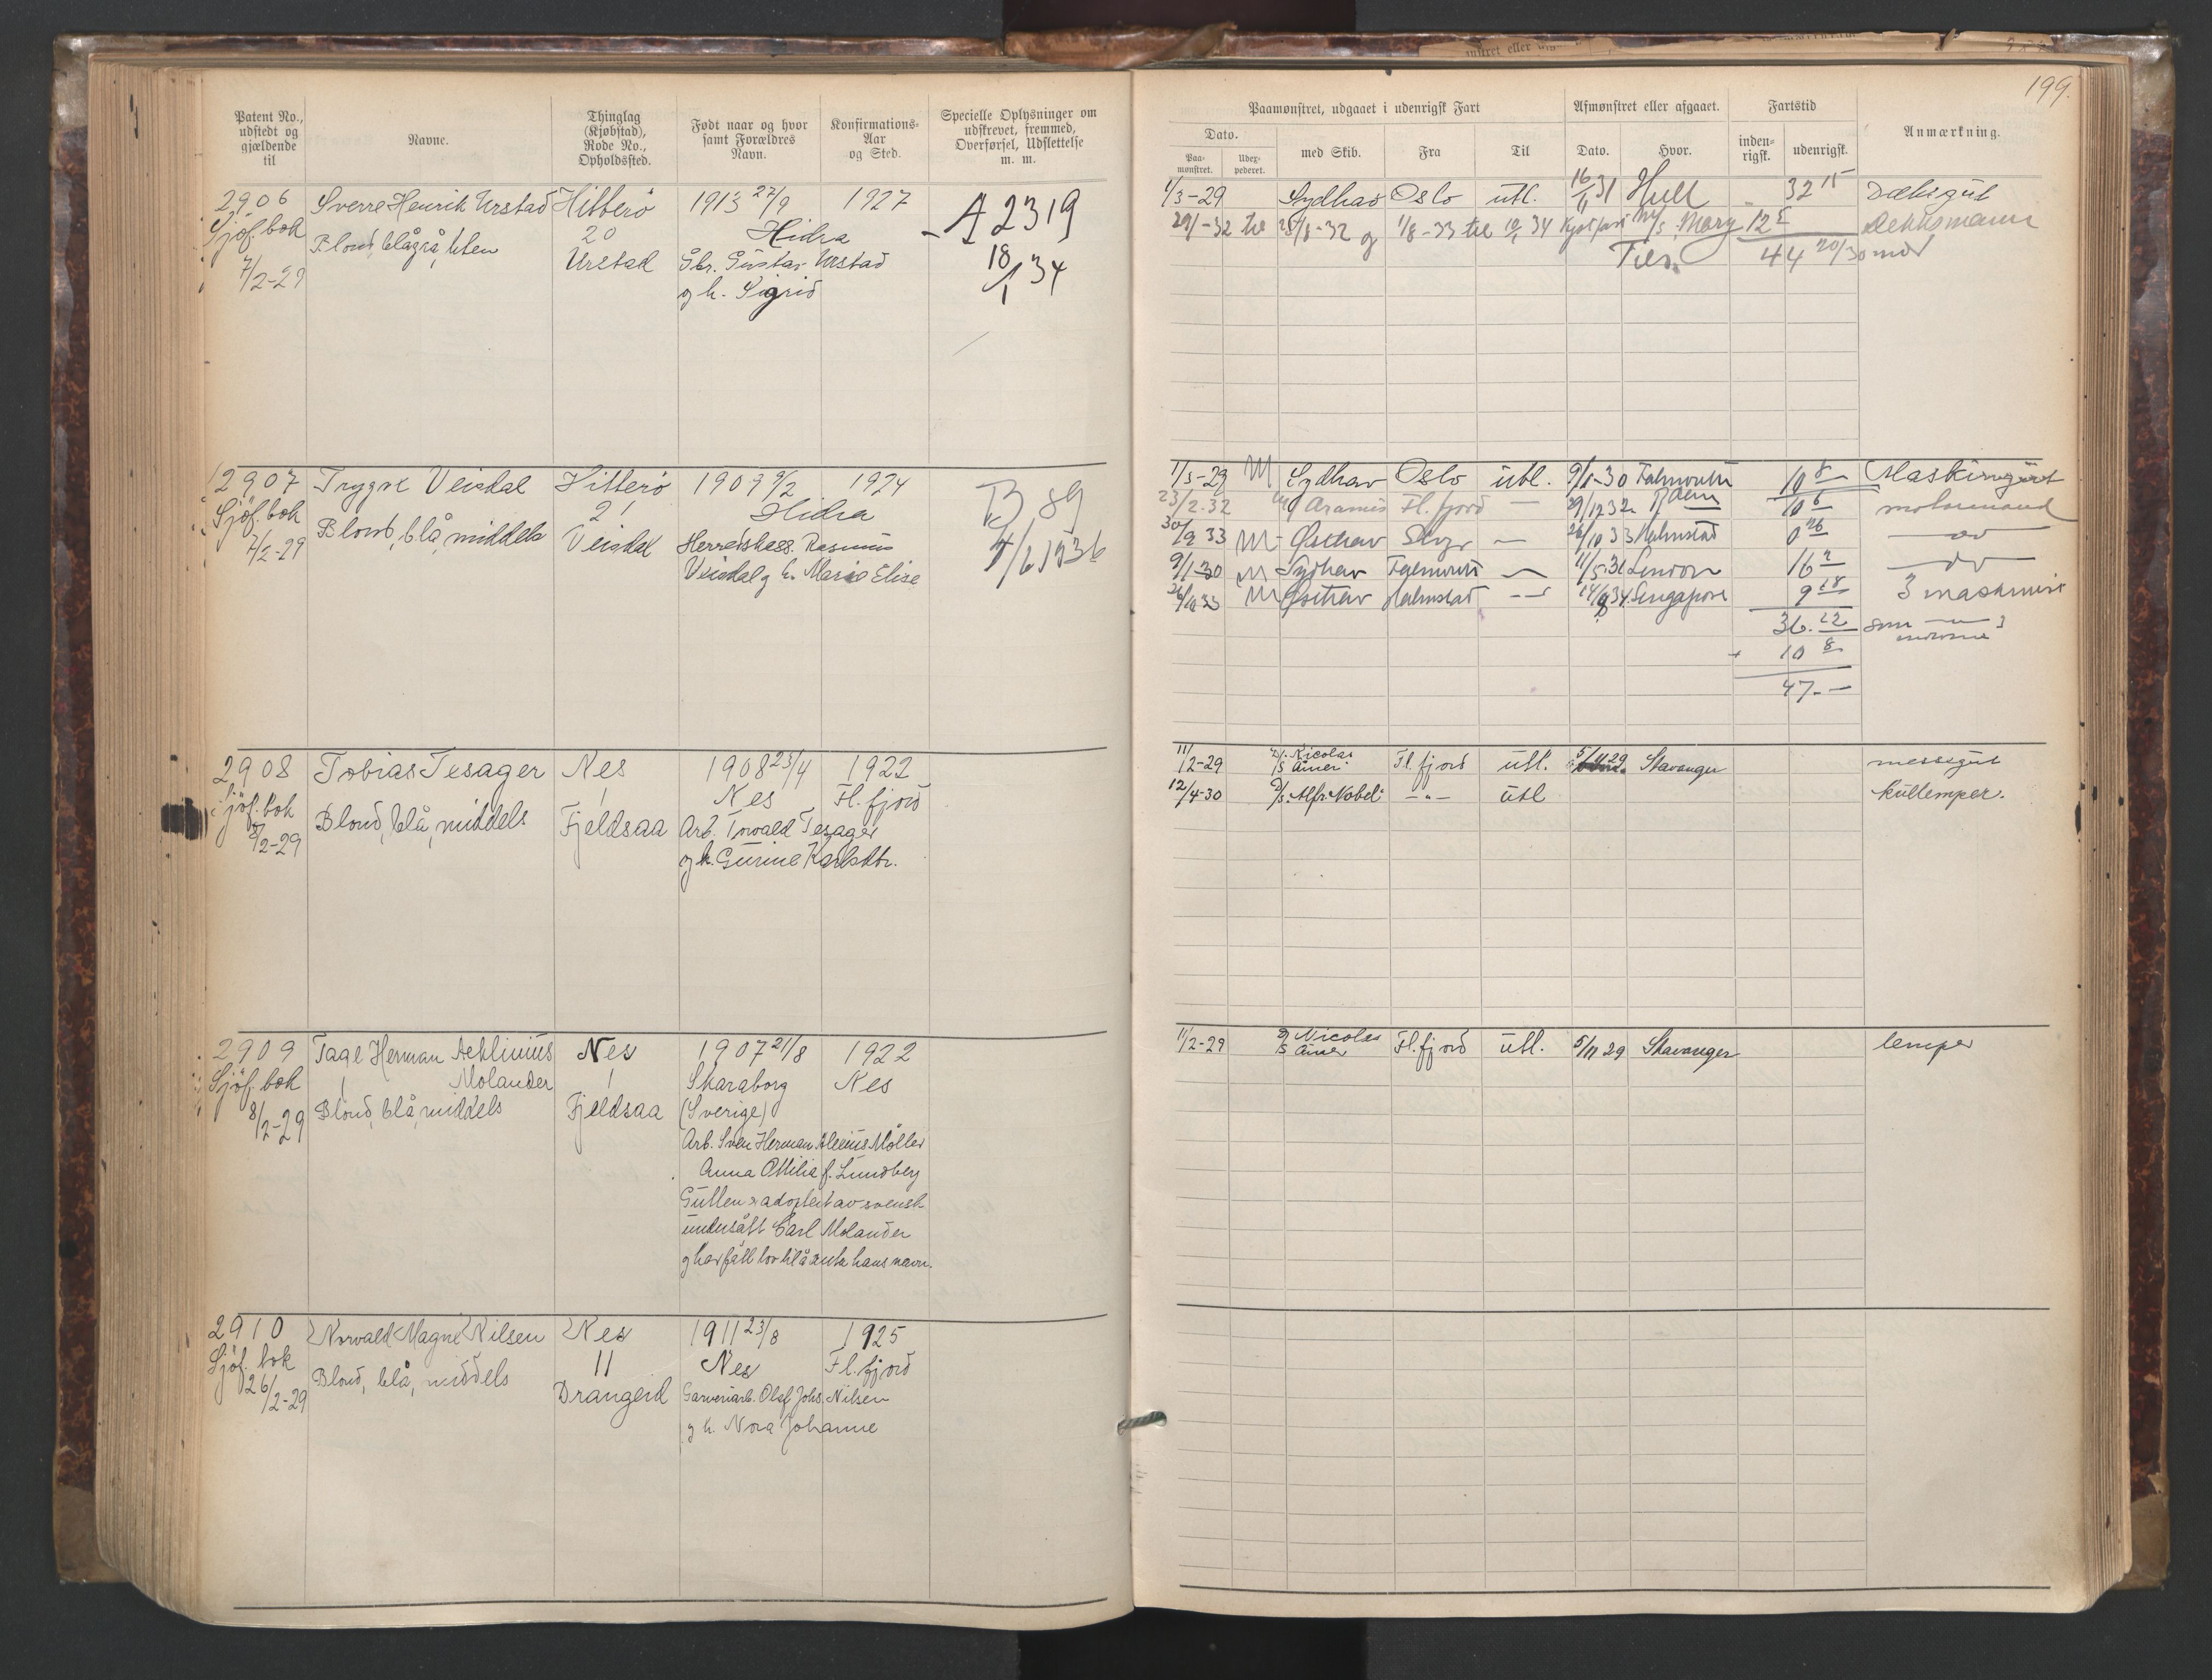 199.
Patent No., udstedt og gjældende til
Navne.
Thinglag (Kjøbstad), Rode No., Opholdssted.
Født naar og hvor samt Forældres Navn.
Konfirmations-Aar og Sted.
Specielle Oplysninger om udskrevet, fremmed, Overførsel, Udslettelse m. m.
Paamønstret, udgaaet i udenrigsk Fart
Afmønstret eller afgaaet.
Fartstid
Anmærkning.
Dato.
Paa-mønstret.
Udex-pederet.
med Skib.
Fra
Til
Dato.
Hvor.
inden-rigsk.
udenrigsk.
2906 Sverre Henrik Urstad Hitterö 1913 27/9 1927
Sjöf. bok Blond, blågrå, liten 20 Hidra
7/2-29 Urstad Gbr. Gustav Urstad
og h. Sigrid
A 2319
18/1 34
1/3-29 Sydhav Oslo utl. 16/11 31 Hull 32 15 Dæksgut
til 28/8-32 og 1/8-33 til 34 M/S Mary 12 Dekksmann
Til 44 20/30 mnd
2907 Trygve Veisdal Hitterö 1909 9/2 1924
Sjöf. bok Blond, blå, middels 21 Hidra
7/2-29 Veisdal Herredskass. Rasmus
Veisdal g h. Marie Elise
B 89
4/6 1936
1/3-29 M Sydhav Oslo utl. 9/1-30 Falmouth 10 8 Maskingut
23/2.32 Aramis Fl. fjord — 29/12 32 10 6 motormand
30/9 33 M Østhav — 26/10 33 Halmstad 0 26 — do —
9/1-30 M Sydhav Falmouth — 11/5-31 London 16 2 — do —
26/10 33 M Østhav Halmstad — 14/8 34 Singapore 9 18 3 maskinist
36. 22 som
+ 10 8
47. —
2908 Tobias Tesager Nes 1908 23/4 1922
Sjöf. bok Blond, blå, middels 1 Nes Fl. fjord
8/2-29 Fjeldsaa Arb. Torvald Tesager
og h. Gurine Karlsdtr.
11/2-29 D/S Nicolas Ameri Fl. fjord utl. 5/11 29 Stavanger messegut
12/4-30 D/S. Alfr. Nobel — " — utl kullemper.
2909 Tage Herman Nes 1907 21/8 1922
Sjöf. bok Molander 1 Skaraborg Nes
8/2-29 Blond, blå, middels Fjeldsaa (Sverige)
Arb. Sven Herman Möller
Anna Ottilia f. Lundberg
Gutten er adoptert av svensk
undersått Carl Molander
g har fått lov til å hans navn.
11/2-29 D/S Nicolas Fl. fjord utl. 5/11 29 Stavanger lemper
2910 Norvald Magne Nilsen Nes 1911 23/8 1925
Sjöf. bok Blond, blå, middels 11 Nes Fl. fjord
26/2-29 Drangeid Garveriarb. Olaf Johs. Nilsen
g h. Nora Johanne